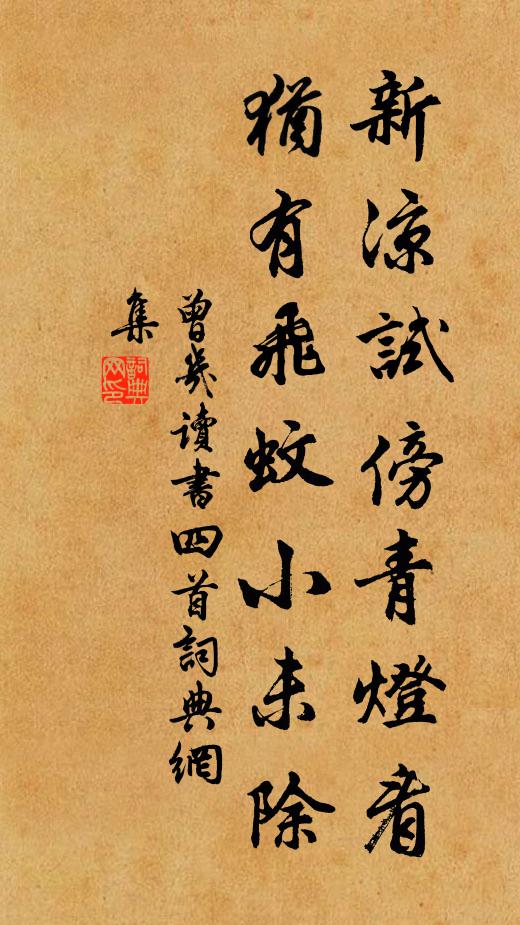 新涼試傍青燈看
猶有飛蚊小未除
曾幾讀書四首詞典網
集
詞典
网印